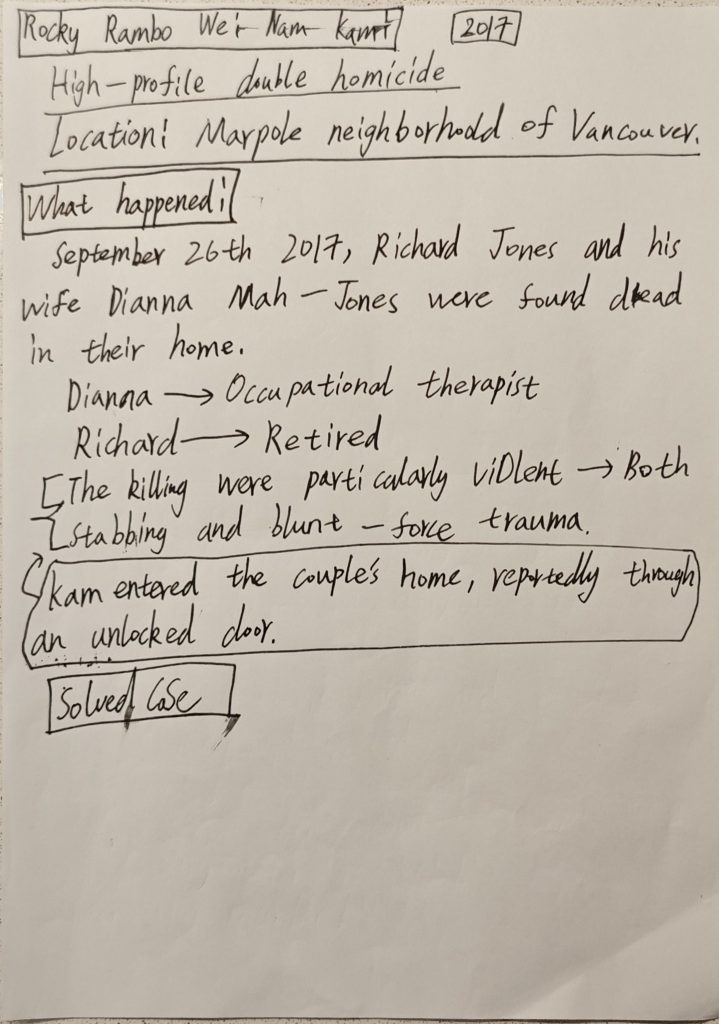 Rocky Rambo Wei Nam Kam 2017
High-profile double homicide
Location: Marpole neighborhood of Vancouver.
What happened:
September 26th 2017, Richard Jones and his
wife Dianna Mah-Jones were found dead
in their home.
Dianna → Occupational therapist
Richard → Retired
[The killing were particularly violent → Both
stabbing and blunt-force trauma.
Kam entered the couple's home, reportedly through
an unlocked door.
Solved Case